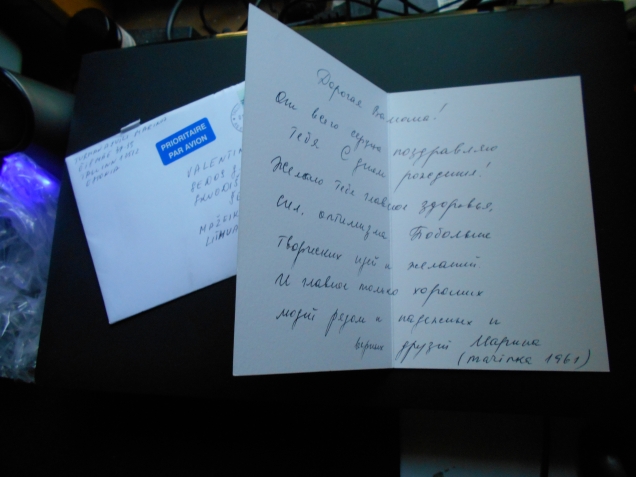 PRIORITAIRE
PAR AVION
VALENTI
MAŽEIK
LITHUA
Дорогая
От всего сердца поздравляю
тебя С днём рождения!
Желаю тебе главное здоровья,
сил, оптимизма Побольше
творческих идей и желаний
И главное только хороших
людей рядом и надежных и
верных друзей Марина
(marinka 1961)